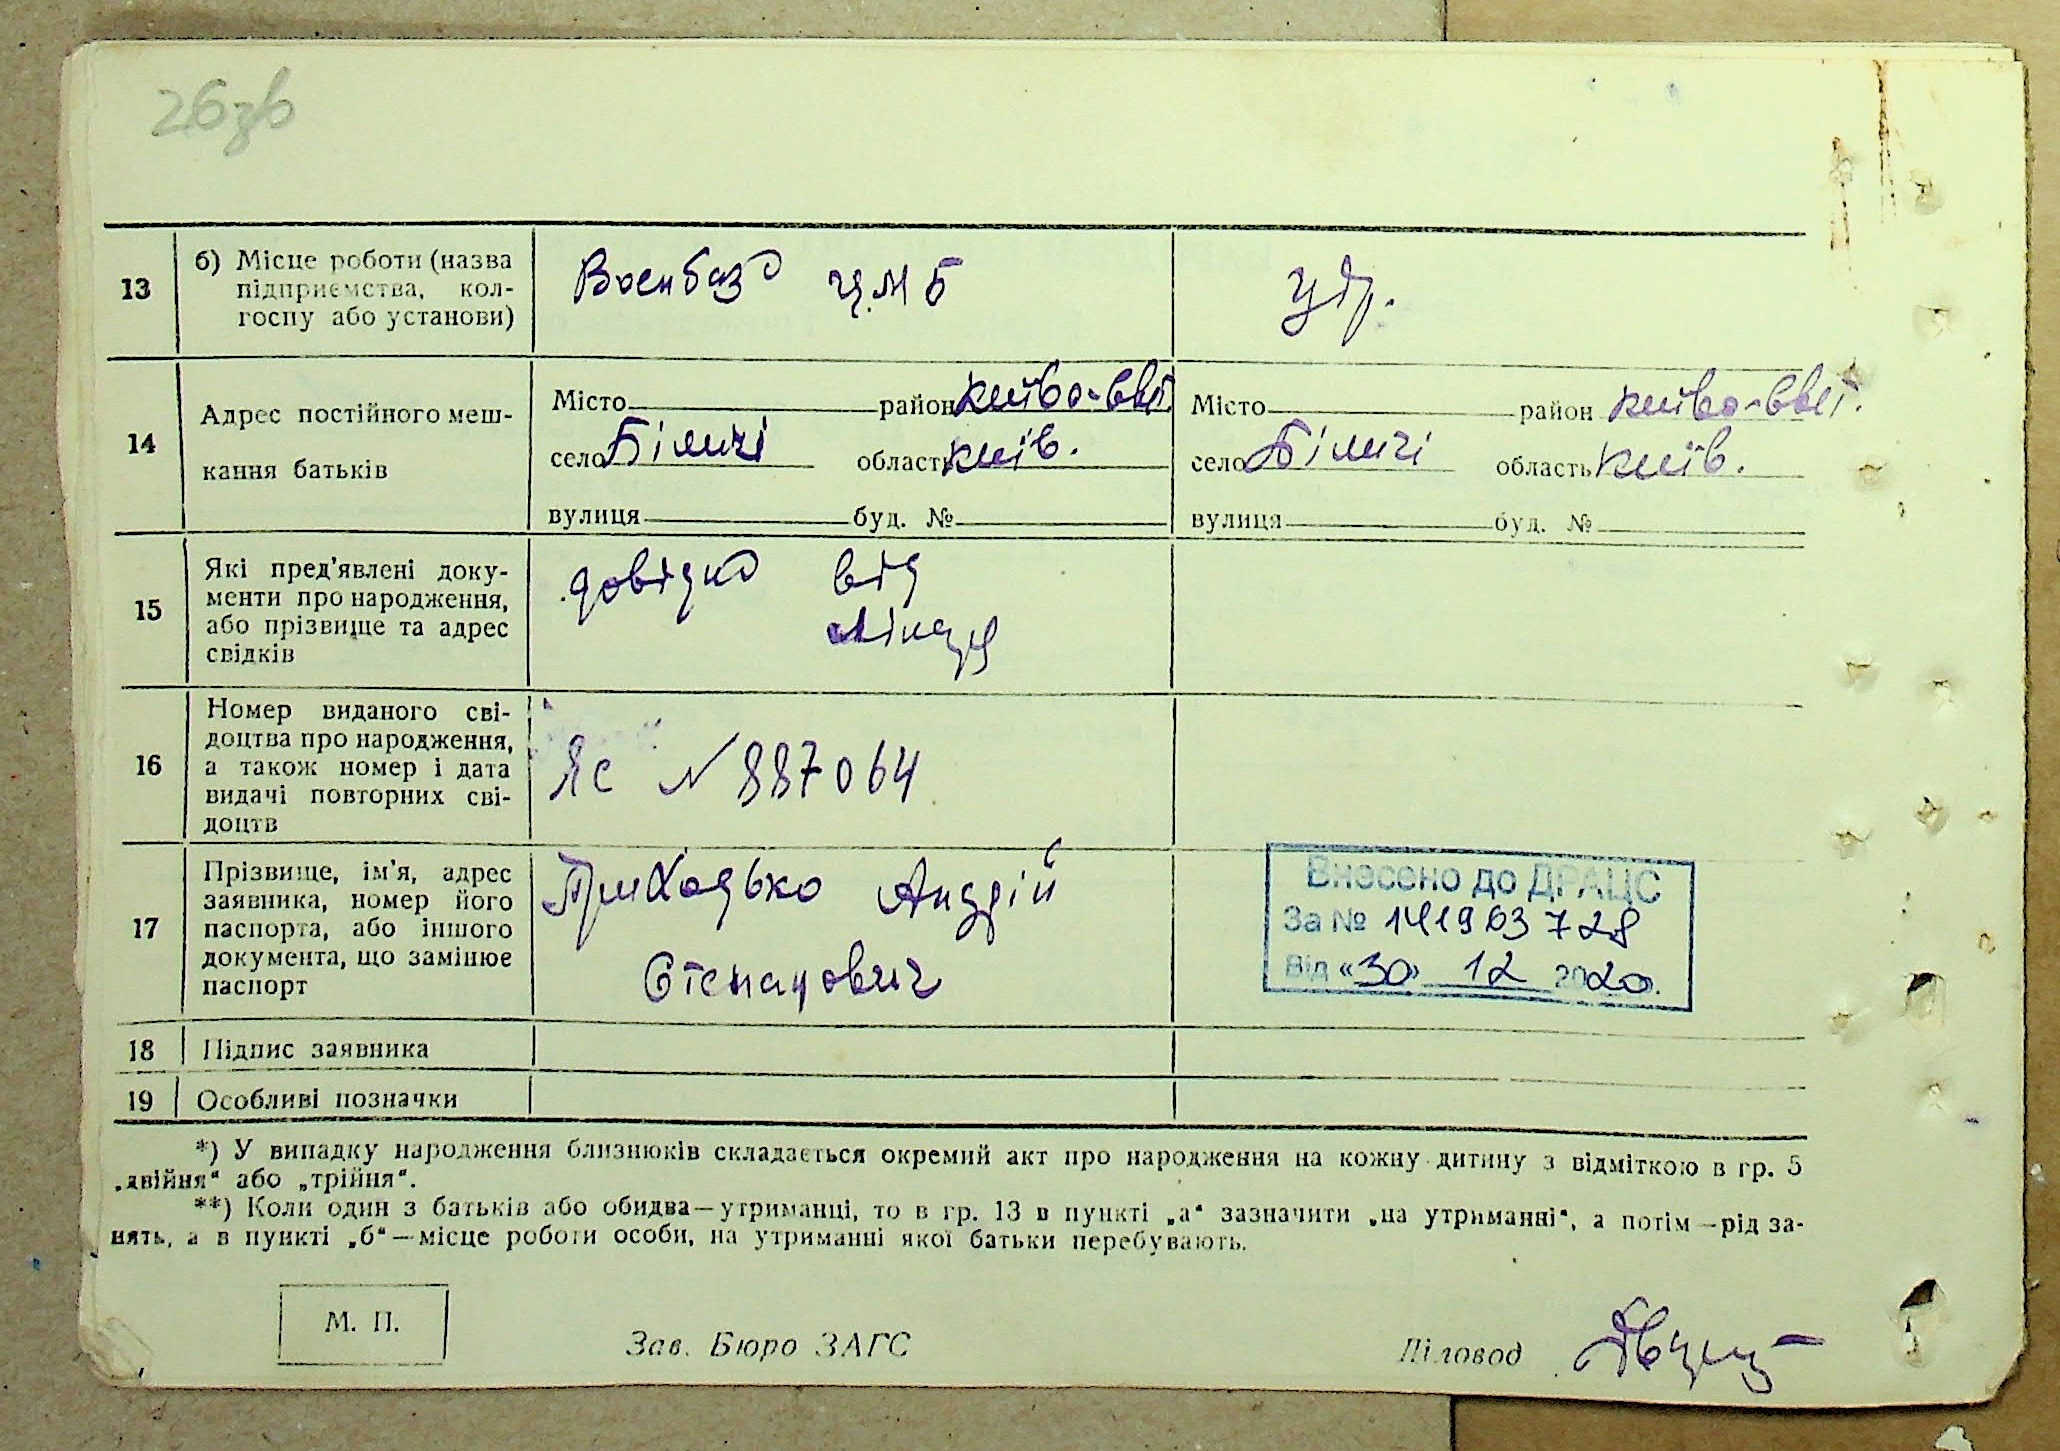 26зв
13
б) Місце роботи (назва
підприємства, кол-
госпу або установи)
Военбаза ЦМБ
утр.
14
Адрес постійного меш-
кання батьків
Місто район Київо-Свят.
село Біличі область Київ.
вулиця буд. №
Місто район Київо-Свят.
село Біличі область Київ.
вулиця буд. №
15
Які пред'явлені доку-
менти про народження,
або прізвище та адрес
свідків
довідка від
16
Номер виданого сві-
доцтва про народження,
а також номер і дата
видачі повторних сві-
доцтв
ЯС № 887064
17
Прізвище, ім'я, адрес
заявника, номер його
паспорта, або іншого
документа, що замінює
паспорт
Приходько Андрій
Степанович
Внесено до ДРАЦС
За № 141963728
Від «30» 12 2020.
18 Підпис заявника
19 Особливі позначки
*) У випадку народження близнюків складається окремий акт про народження на кожну дитину з відміткою в гр. 5
„двійня" або „трійня".
**) Коли один з батьків або обидва—утриманці, то в гр. 13 в пункті „а" зазначити „на утриманні", а потім—рід за-
нять, а в пункті „б"—місце роботи особи, на утриманні якої батьки перебувають.
М. П.
Зав. Бюро ЗАГС
Діловод